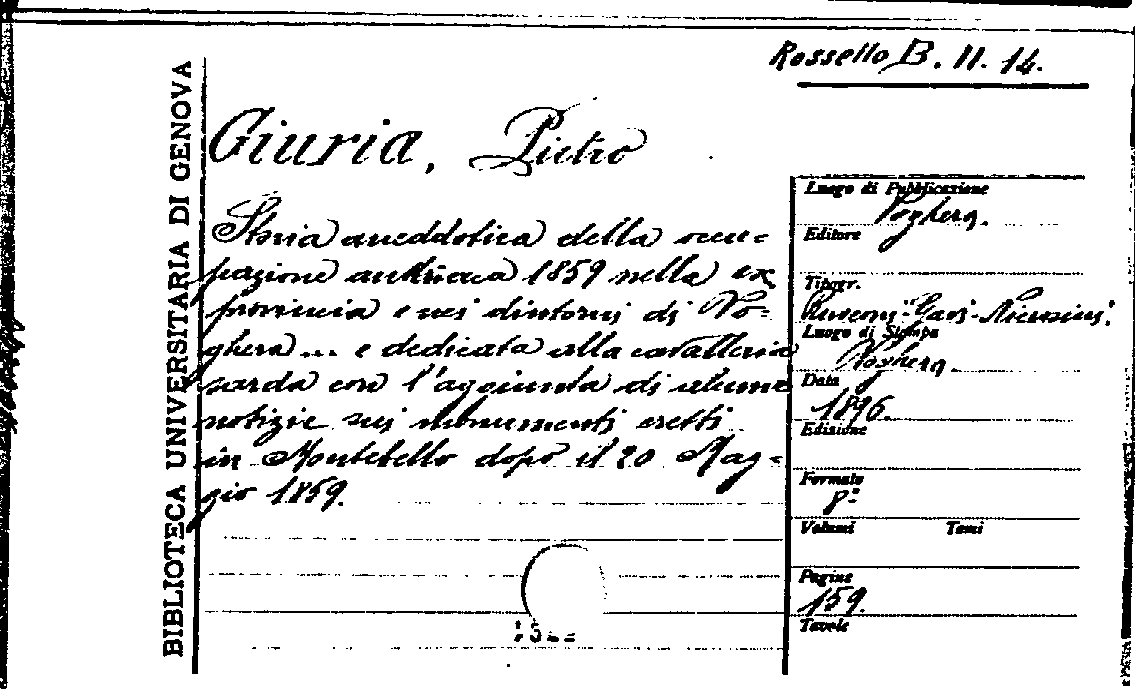 Rossello B. II. 14.
BIBLIOTECA UNIVERSITARIA DI GENOVA
Giuria, Pietro
Storia aneddotica della occu=
pazione austriaca 1859 nella ex
provincia e nei dintorni di Vo=
ghera... e dedicata alla cavalleria
sarda con l'aggiunta di alcune
notizie sui monumenti eretti
in Montebello dopo il 20 Mag=
gio 1859.
Luogo di Pubblicazione
Voghera.
Editore
Tipogr.
Rusconi-Gavi-Nicrosini.
Luogo di Stampa
Voghera.
Data
1896.
Edizione
Formato
8º
Volumi Tomi
Pagine
159.
Tavole